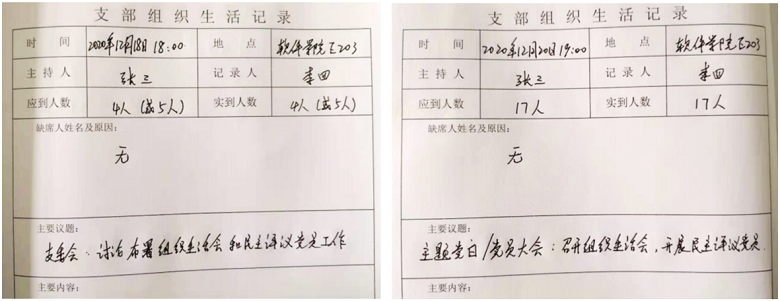 支部组织生活记录
时 间 2020年12月18日 18:00 地 点 软件学院E203
主 持 人 张三 记 录 人 李四
应到人数 4人(或5人) 实到人数 4人(或5人)
缺席人姓名及原因:
无
主要议题:
支委会:讨论布署组织生活会和民主评议党员工作
主要内容:
支部组织生活记录
时 间 2020年12月20日 19:00 地 点 软件学院E203
主 持 人 张三 记 录 人 李四
应到人数 17人 实到人数 17人
缺席人姓名及原因:
无
主要议题:
主题党日/党员大会:召开组织生活会,开展民主评议党员.
主要内容: